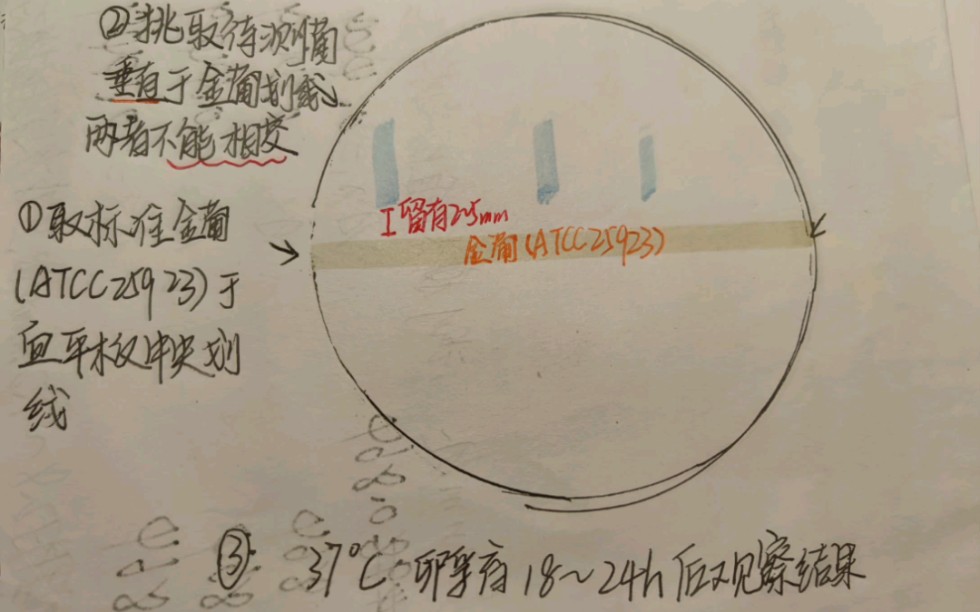 ②挑取待测菌
垂直于金葡划线
两者不能相交
①取标准金葡
(ATCC25923)于
血平板中央划
线
工留有2-5mm
金葡(ATCC25923)
③ 37°C 孵育18~24h后观察结果